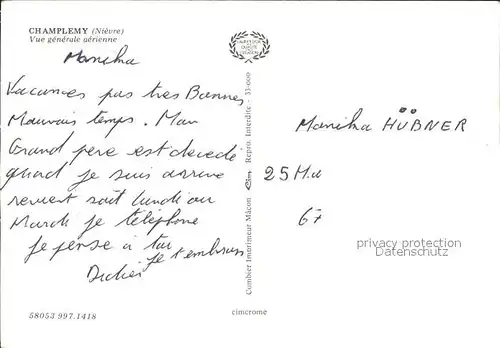 CHAMPLEMY (Nièvre)
Vue générale aérienne
Monika
Vacances pas tres Bonnes
Mauvais temps. Mon
Grand pere est decede
quand je suis arrive
revient soit lundi ou
Mardi je téléphone
je pense a toi
je t'embrass
Didier
58053 997.1418
IMPRIMEUR
QUALITE
CREATION
Combier Imprimeur Mâcon Cim Repro. Interdite - 33-000
cimcrome
Monika HÜBNER
25 M.
67
privacy protection
Datenschutz